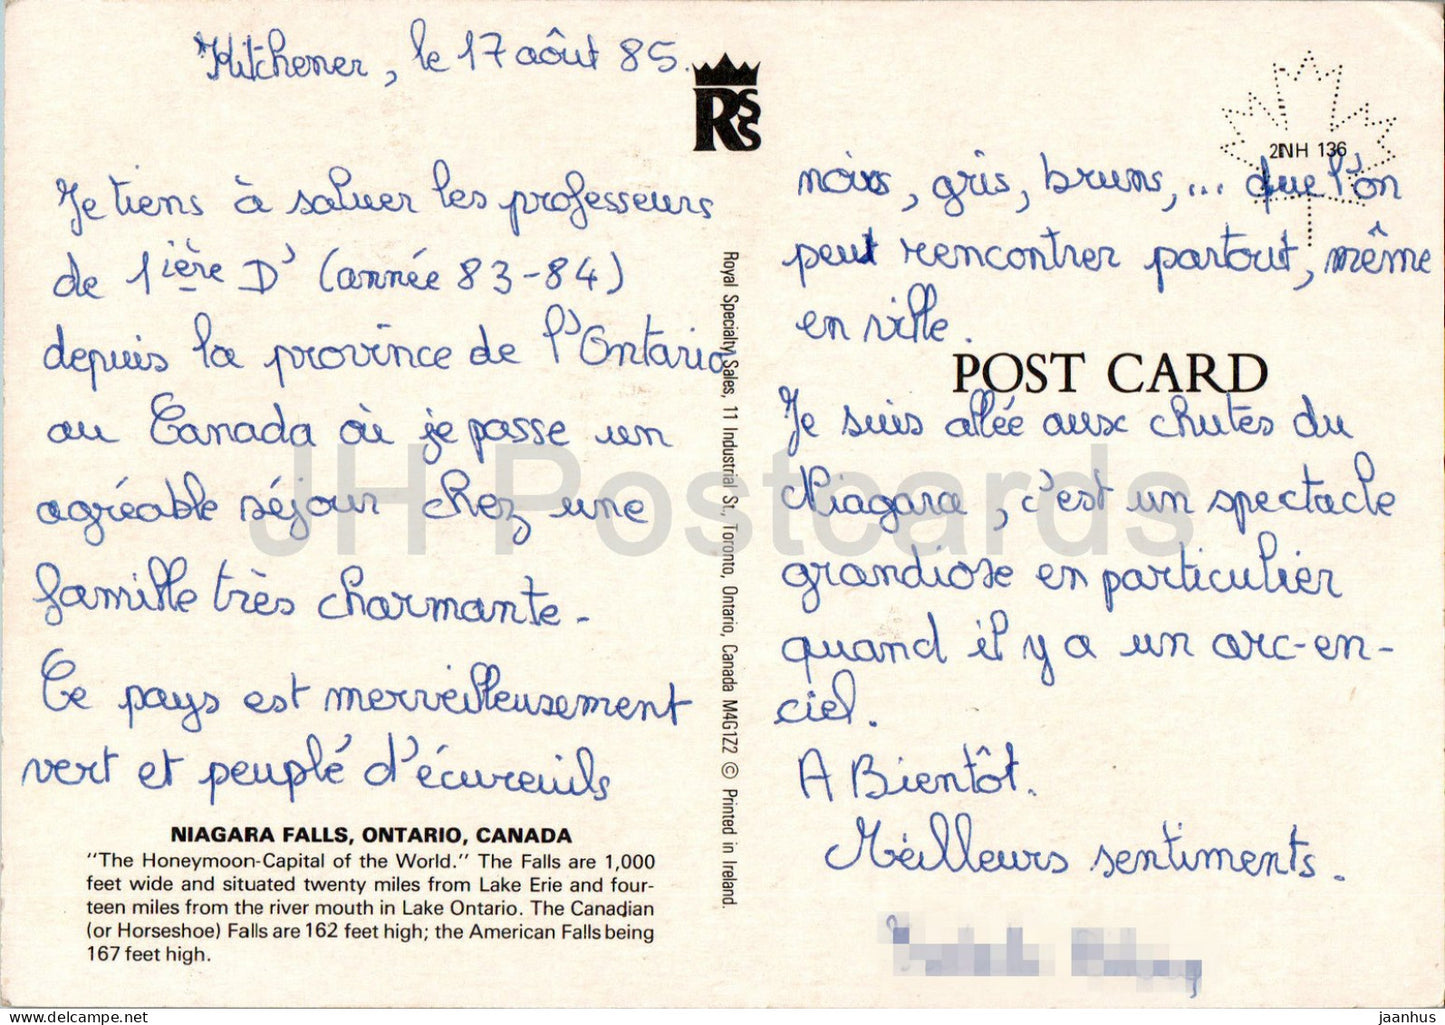 Kitchener, le 17 août 85.
RSS
Je tiens à saluer les professeurs
de 1ière D' (année 83-84)
depuis la province de l'Ontario
au Canada où je passe un
agréable séjour chez une
famille très charmante.
Ce pays est merveilleusement
vert et peuplé d'écureuils
NIAGARA FALLS, ONTARIO, CANADA
"The Honeymoon-Capital of the World." The Falls are 1,000
feet wide and situated twenty miles from Lake Erie and four-
teen miles from the river mouth in Lake Ontario. The Canadian
(or Horseshoe) Falls are 162 feet high; the American Falls being
167 feet high.
Royal Specialty Sales, 11 Industrial St., Toronto, Ontario, Canada M4G1Z2 © Printed in Ireland.
2INH 136
noirs, gris, bruns, ... que l'on
peut rencontrer partout, même
en ville.
POST CARD
Je suis allée aux chutes du
Niagara, c'est un spectacle
grandiose en particulier
quand il y a un arc-en-
ciel.
A Bientôt.
Meilleurs sentiments.
JH Postcards
delcampe.net
jaanhus